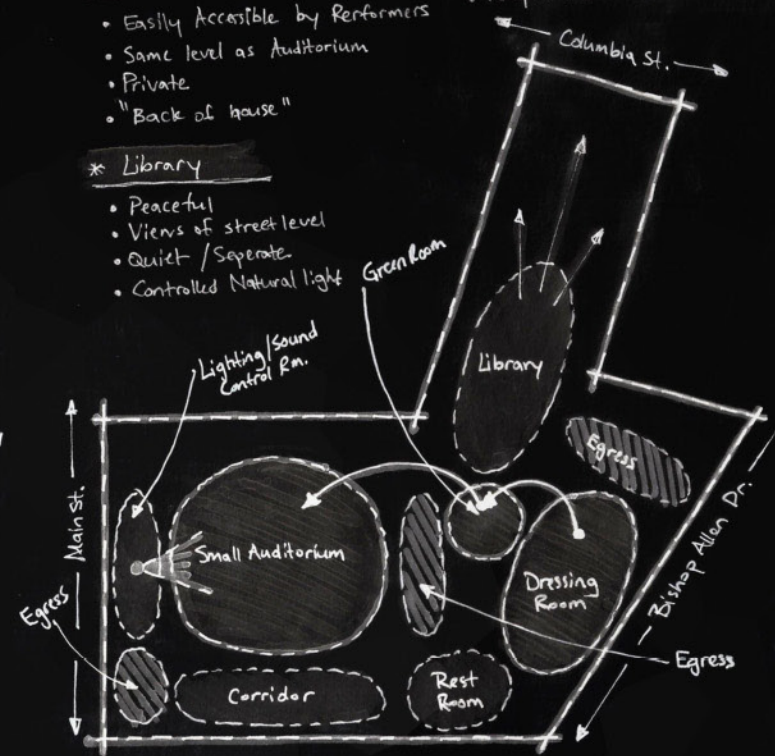 • Easily Accesible by Performers
• Same level as Auditorium
• Private
• "Back of house"
* Library
• Peaceful
• Views of street level
• Quiet / Seperate
• Controlled Natural light
Columbia St.
Green Room
Lighting/Sound
Control Rm.
Library
Egress
Main St.
Small Auditorium
Dressing
Room
Bishop Allen Dr.
Egress
Egress
Corridor
Rest
Room